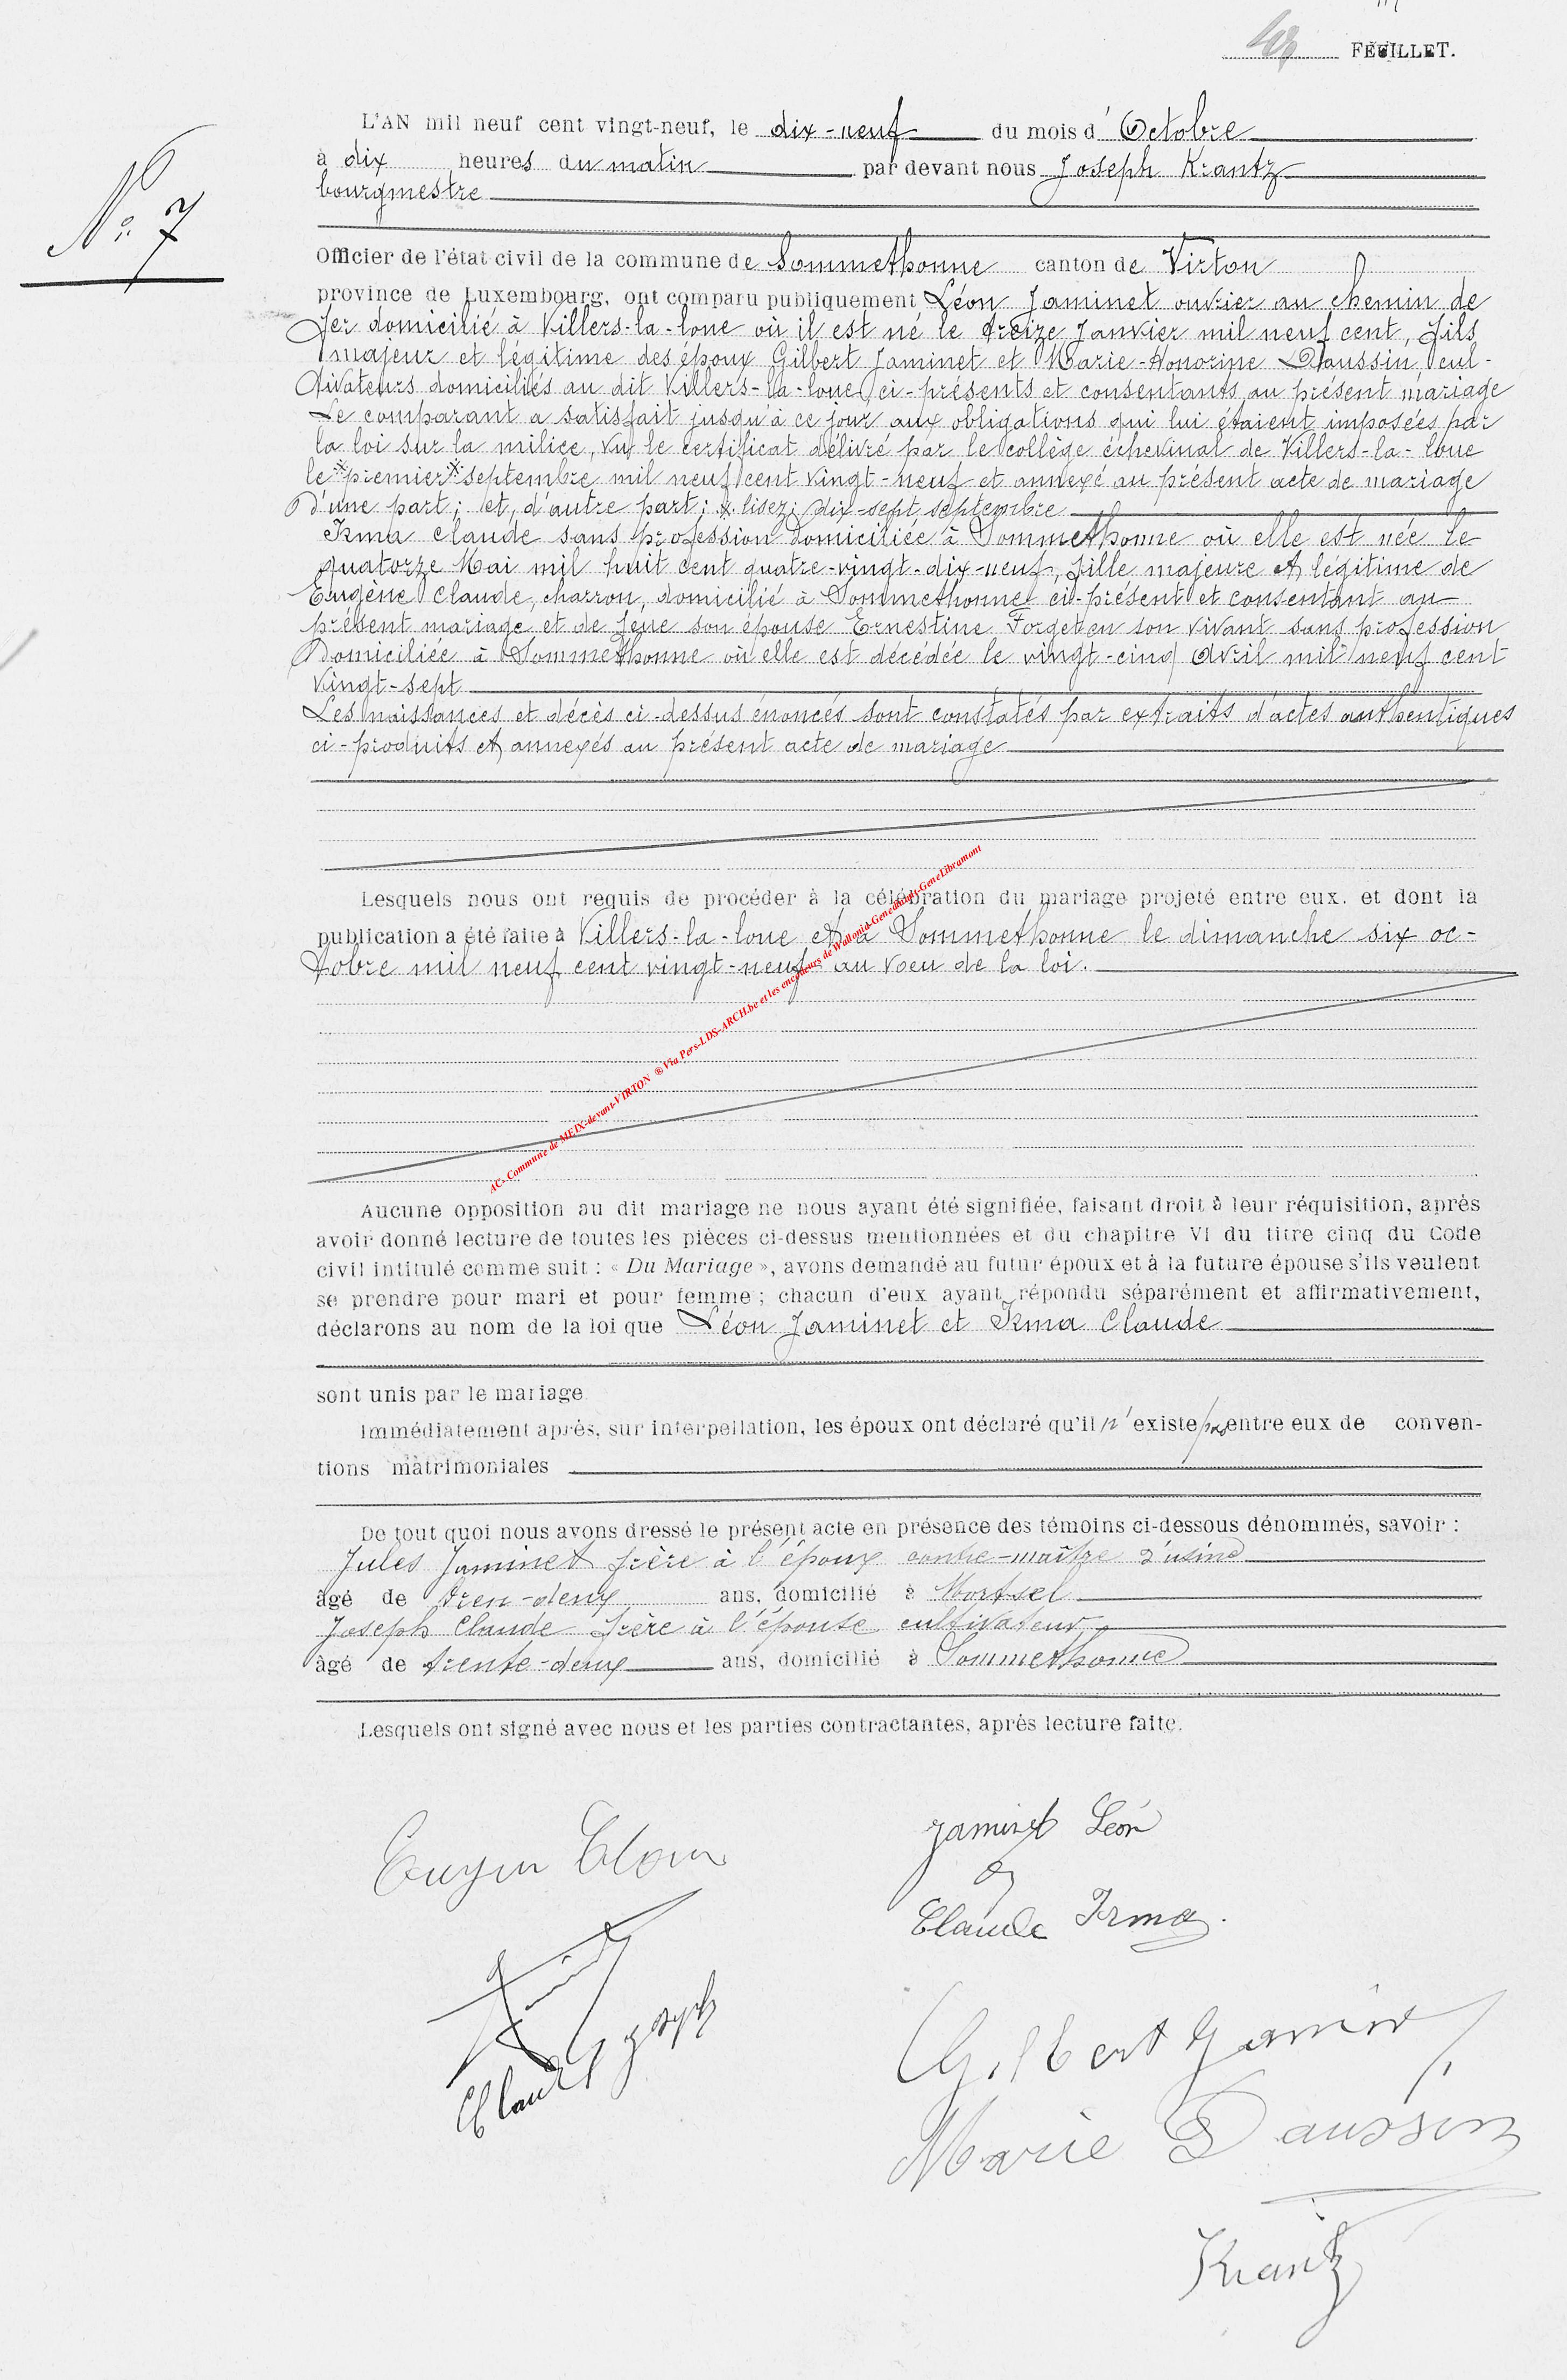 FEUILLET.
N° 7
L'AN mil neuf cent vingt-neuf, le dix-neuf du mois d'Octobre
à dix heures du matin par devant nous Joseph Krantz
bourgmestre
Officier de l'état civil de la commune de Sommethonne canton de Virton
province de Luxembourg, ont comparu publiquement Léon Jaminet ouvrier au chemin de
fer domicilié à Villers-la-loue où il est né le treize Janvier mil neuf cent, fils
majeur et légitime des époux Gilbert Jaminet et Marie-Honorine Daussin, cul-
tivateurs domiciliés au dit Villers-la-loue, ci-présents et consentants au présent mariage
Le comparant a satisfait jusqu'à ce jour aux obligations qui lui étaient imposées par
la loi sur la milice, vu le certificat délivré par le collège échevinal de Villers-la-loue
le *premier* septembre mil neuf cent vingt-neuf et annexé au présent acte de mariage
D'une part; et, d'autre part; * lisez: dix-sept septembre
Irma Claude sans profession domiciliée à Sommethonne où elle est née le
quatorze Mai mil huit cent quatre-vingt-dix-neuf, fille majeure et légitime de
Eugène Claude, charron, domicilié à Sommethonne ci-présent et consentant au
présent mariage et de feue son épouse Ernestine Forget en son vivant sans profession
domiciliée à Sommethonne où elle est décédée le vingt-cinq Avril mil neuf cent
vingt-sept
Les naissances et décès ci-dessus énoncés sont constatés par extraits d'actes authentiques
ci-produits et annexés au présent acte de mariage
Lesquels nous ont requis de procéder à la célébration du mariage projeté entre eux. et dont la
publication a été faite à Villers-la-loue et à Sommethonne le dimanche six oc-
tobre mil neuf cent vingt-neuf au voeu de la loi.
AC. Commune de MEIX-devant-VIRTON ® Via Pers-LDS-ARCH.be et les encodeurs de Wallonid-Genedinant-GeneLibramont
Aucune opposition au dit mariage ne nous ayant été signifiée, faisant droit à leur réquisition, après
avoir donné lecture de toutes les pièces ci-dessus mentionnées et du chapitre VI du titre cinq du Code
civil intitulé comme suit : « Du Mariage », avons demandé au futur époux et à la future épouse s'ils veulent
se prendre pour mari et pour femme ; chacun d'eux ayant répondu séparément et affirmativement,
déclarons au nom de la loi que Léon Jaminet et Irma Claude
sont unis par le mariage
Immédiatement après, sur interpellation, les époux ont déclaré qu'il n'existe pas entre eux de conven-
tions matrimoniales
De tout quoi nous avons dressé le présent acte en présence des témoins ci-dessous dénommés, savoir :
Jules Jaminet frère à l'époux contre-maître d'usine
âgé de tren-deux ans, domicilié à Mortsel
Joseph Claude frère à l'épouse cultivateur
âgé de trente-deux ans, domicilié à Sommethonne
Lesquels ont signé avec nous et les parties contractantes, après lecture faite.
Jaminet Léon
Claude Irma.
Claude Joseph
Gilbert Jaminet
Marie Daussin
Krantz